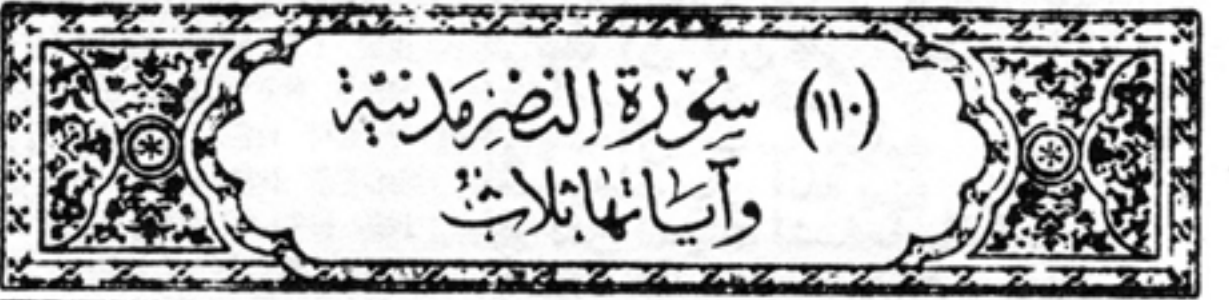 (١١٠) سُوْرَة النصْر مَدنيَّة
وآيَاتهَا ثلاثٌ